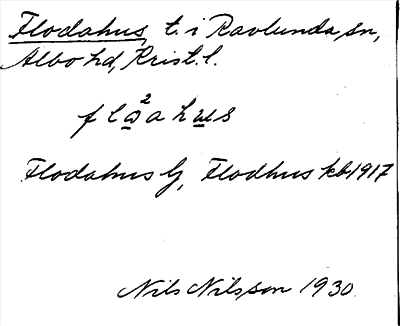 Flodahus, t. i Ravlunda sn,
Albo hd, Krist. l.
flω̲²ahu̲s
Flodahus Gj, Flodhus kb 1917
Nils Nilsson 1930